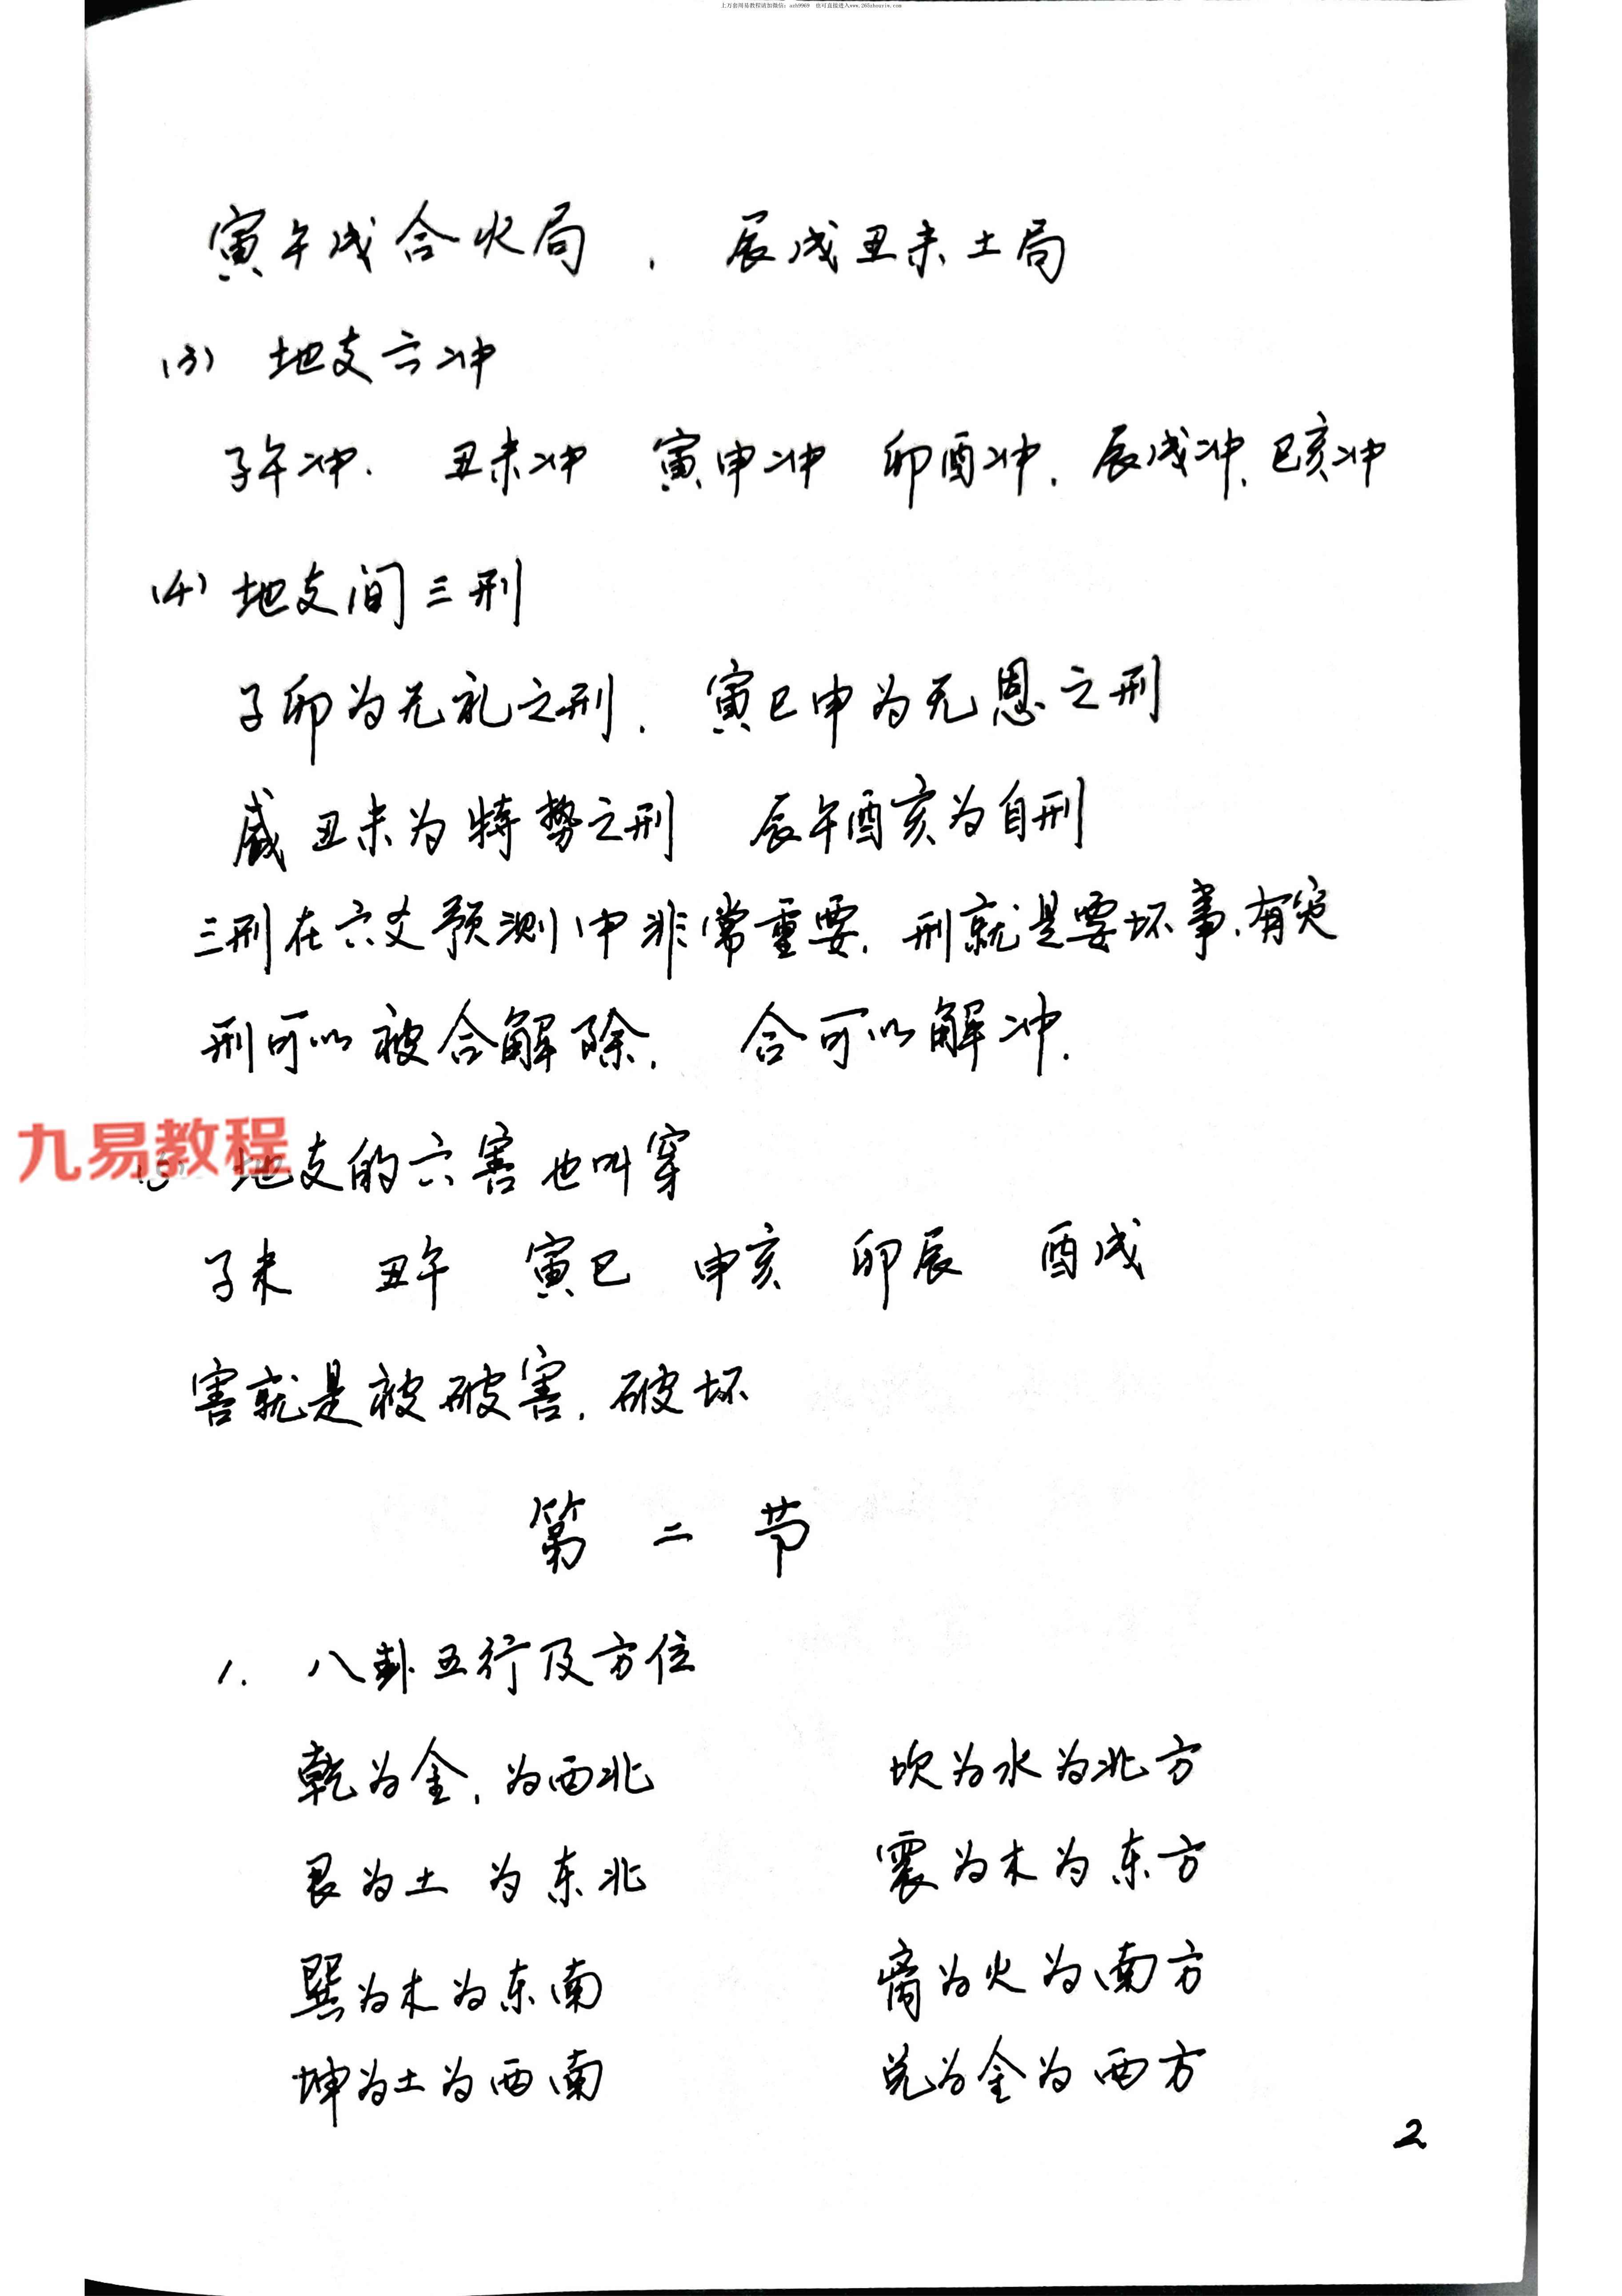 上万套周易教程请加微信：axh9969 也可直接进入www.265zhouyiw.com
寅午戌合火局，辰戌丑未土局
(3) 地支六冲
子午冲. 丑未冲 寅申冲 卯酉冲. 辰戌冲. 巳亥冲
(4) 地支间三刑
子卯为无礼之刑. 寅巳申为无恩之刑
戌丑未为特势之刑 辰午酉亥为自刑
三刑在六爻预测中非常重要. 刑就是要坏事. 有灾
刑可以被合解除. 合可以解冲.
九易教程
(5) 地支的六害也叫穿
子未 丑午 寅巳 申亥 卯辰 酉戌
害就是被破害. 破坏
第二节
1. 八卦五行及方位
乾为金, 为西北 坎为水为北方
艮为土 为东北 震为木为东方
巽为木为东南 离为火为南方
坤为土为西南 兑为金为西方
2